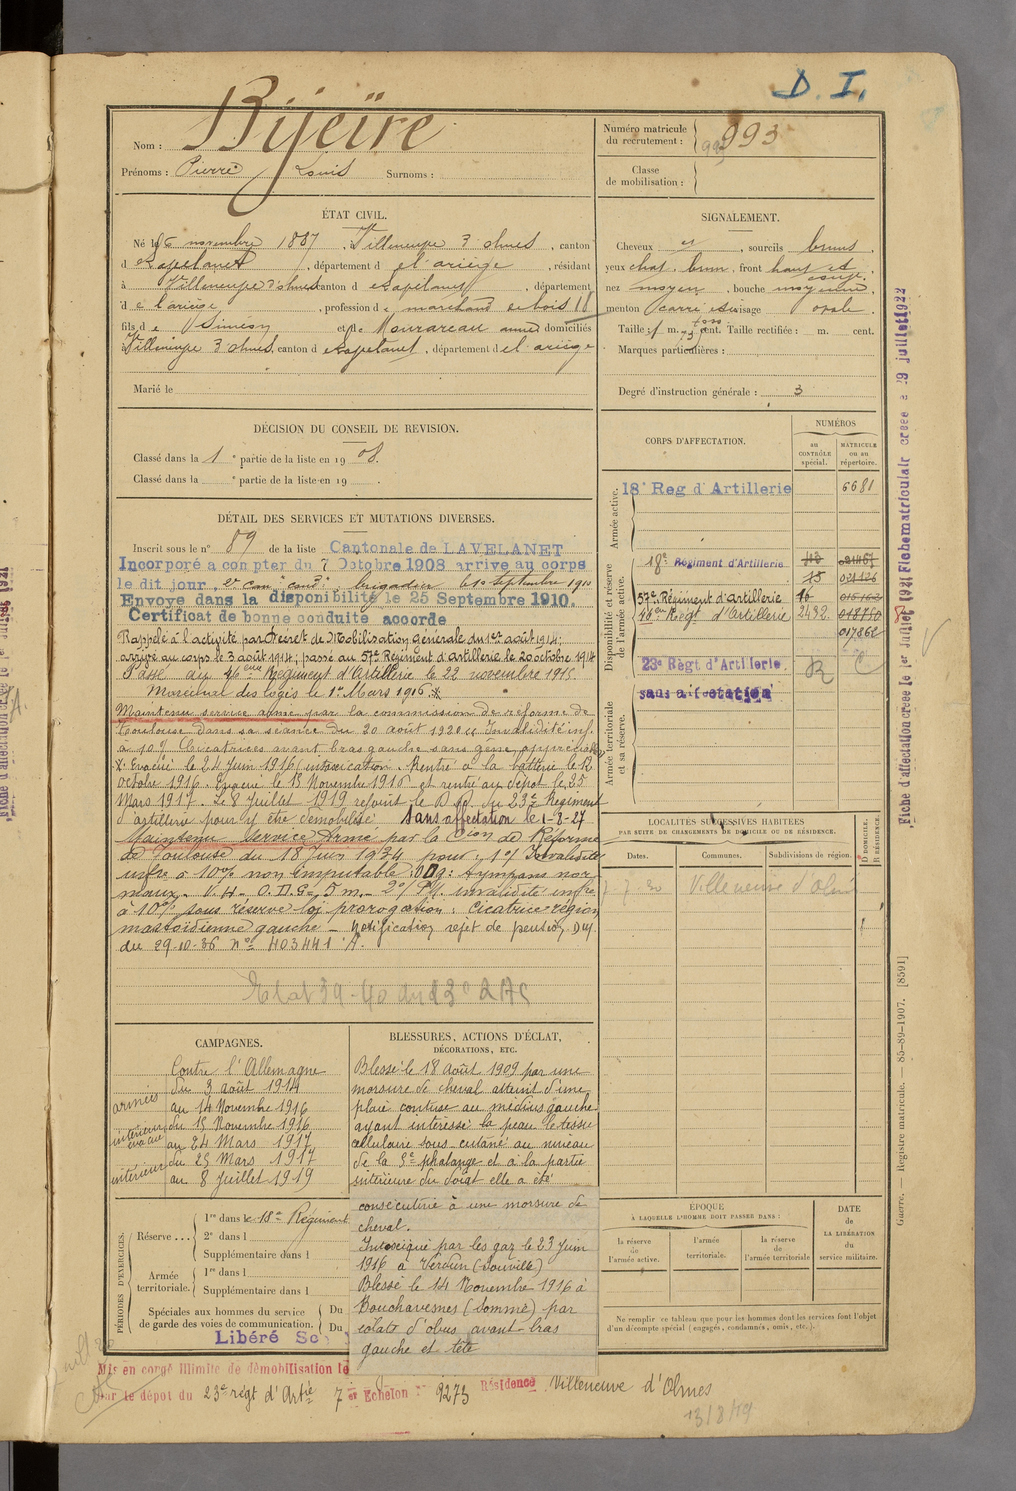 D. I.
Nom : Bijeïre
Prénoms : Pierre Louis Surnoms :
Numéro matricule du recrutement : 993
Classe de mobilisation :
ÉTAT CIVIL.
Né le 6 novembre 1887, à Villeneuve d'Olmes, canton
de Lavelanet, département de l'ariège, résidant
à Villeneuve d'Olmes canton de Lavelanet, département
de l'ariège, profession de marchand de bois 18
fils de Siméon et de Mourareau anne domiciliés
à Villeneuve d'Olmes, canton de Lavelanet, département de l'ariège
Marié le
SIGNALEMENT.
Cheveux, sourcils bruns,
yeux chat. brun, front haut et
nez moyen, bouche moyenne,
menton carré visage ovale.
Taille : 1 m. 73 cent. Taille rectifiée : m. cent.
Marques particulières :
Degré d'instruction générale : 3
DÉCISION DU CONSEIL DE REVISION.
Classé dans la 1e partie de la liste en 1908.
Classé dans la e partie de la liste en 19
DÉTAIL DES SERVICES ET MUTATIONS DIVERSES.
Inscrit sous le n° 89 de la liste Cantonale de LAVELANET
Incorporé à compter du 7 Octobre 1908 arrivé au corps
le dit jour, 2e can. cond., brigadier le 10 Septembre 1910
Envoyé dans la disponibilité le 25 Septembre 1910.
Certificat de bonne conduite accordé
Rappelé à l'activité par Décret de Mobilisation générale du 1er août 1914;
arrivé au corps le 3 août 1914; passé au 57e Régiment d'artillerie le 20 octobre 1914
Passé au 46eme Régiment d'Artillerie le 22 novembre 1915.
Maréchal des logis le 1er Mars 1916. *
Maintenu service armé par la commission de réforme de
Toulouse dans sa séance du 30 août 1920 "Invalidité inf.
à 10% Cicatrices avant bras gauche sans gêne appréciable"
* Evacué le 24 Juin 1916 (intoxication. Rentré à la batterie le 12
octobre 1916. Evacué le 15 Novembre 1916 et rentré au dépôt le 25
Mars 1917. Le 8 Juillet 1919 rejoint le D. D. du 23e Régiment
d'artillerie pour y être démobilisé. Sans affectation le 1-8-27
Maintenu Service Armé par la Cion de Réforme
de Toulouse du 18 Juin 1934 pour : 1°/ Invalidité
infre à 10% non imputable. ODG : tympans nor-
maux. V.H. O.D.G= 5m. 2°/ P.M. invalidité infre
à 10% sous réserve loi prorogation : cicatrice région
mastoïdienne gauche - Notification rejet de pension D.M.
du 29-10-36 n° 403441 A.
Etat 39-40 du 23e
CORPS D'AFFECTATION.
NUMÉROS
AU CONTRÔLE spécial.
MATRICULE ou au répertoire.
Armée active.
18e Reg d'Artillerie 6681
Disponibilité et réserve de l'armée active.
18e Régiment d'Artillerie
15
57e Régiment d'artillerie 16
Regt d'Artillerie 2432
017862
23e Règt d'Artillerie
sans affectation
Armée territoriale et sa réserve.
LOCALITÉS SUCCESSIVES HABITÉES
PAR SUITE DE CHANGEMENTS DE DOMICILE OU DE RÉSIDENCE.
Dates. Communes. Subdivisions de région. D DOMICILE. R RÉSIDENCE.
7-7-20 Villeneuve d'Olmes
CAMPAGNES.
Contre l'Allemagne
armées du 3 août 1914
au 14 Novembre 1916
intérieur évacué du 15 Novembre 1916
au 24 Mars 1917
intérieur du 25 Mars 1917
au 8 Juillet 1919
BLESSURES, ACTIONS D'ÉCLAT, DÉCORATIONS, ETC.
Blessé le 18 août 1909 par une
morsure de cheval atteint d'une
plaie contuse au médius gauche
ayant intéressé la peau le tissu
cellulaire sous cutané au niveau
de la 3e phalange et à la partie
intérieure du doigt elle a été
consécutive à une morsure de
cheval.
Intoxiqué par les gaz le 23 Juin
1916 à Verdun (Souville)
Blessé le 14 Novembre 1916 à
Bouchavesnes (Somme) par
éclats d'obus avant bras
gauche et tête
PÉRIODES D'EXERCICES.
Réserve ... 1re dans le 18e Régiment
2e dans l
Supplémentaire dans l
Armée territoriale. 1re dans l
Supplémentaire dans l
Spéciales aux hommes du service de garde des voies de communication. Du
Du
Libéré
ÉPOQUE
À LAQUELLE L'HOMME DOIT PASSER DANS :
la réserve de l'armée active.
l'armée territoriale.
la réserve de l'armée territoriale
DATE de LA LIBÉRATION du service militaire.
Ne remplir ce tableau que pour les hommes dont les services font l'objet
d'un décompte spécial (engagés, condamnés, omis, etc.).
Mis en congé illimité de démobilisation le
par le dépôt du 23e régt d'Artie 7 er Echelon n° 9273 Résidence Villeneuve d'Olmes
13/8/19
Fiche d'affectation créée le 1er Juillet 1921 Fiche matriculaire créée le 29 juillet 1922
Guerre. — Registre matricule. — 85-89-1907. [8591]